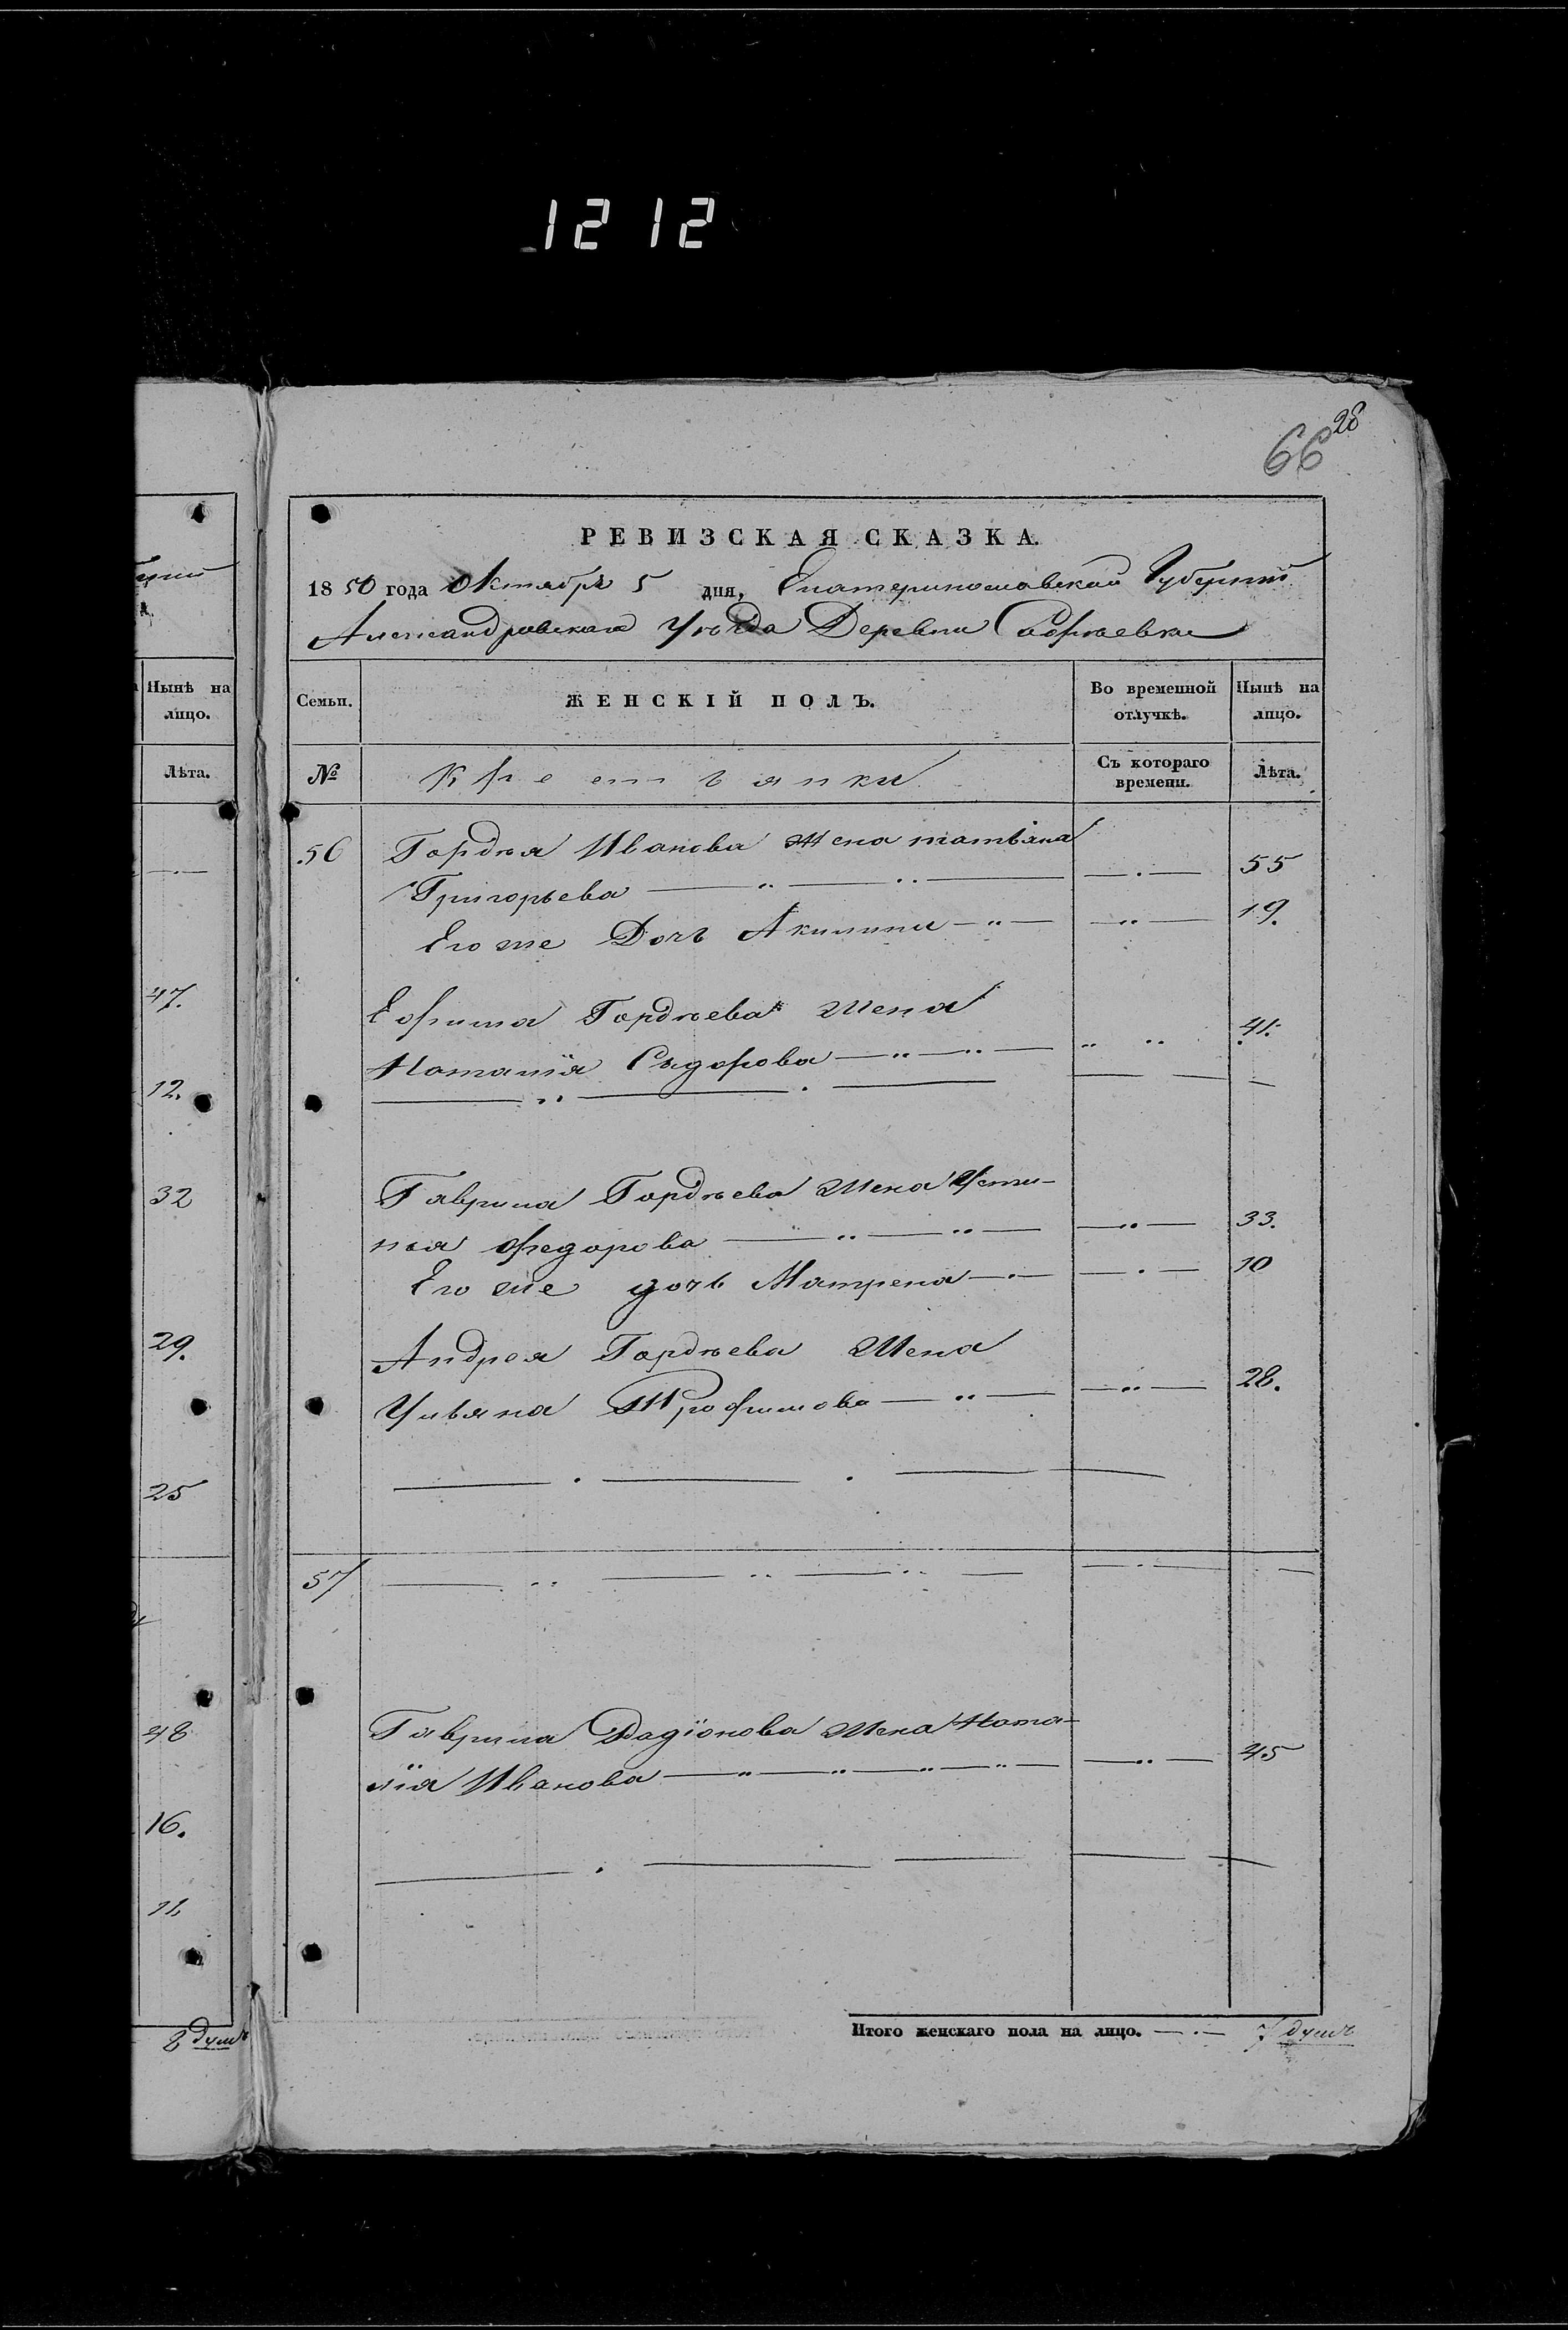 1212
28
66
РЕВИЗСКАЯ СКАЗКА.
1850 года Октября 5 дня, Екатеринославской Губернiи
Александровскаго Уѣзда Деревни Софіевки
Семьи. ЖЕНСКІЙ ПОЛЪ. Во временной отлучкѣ. Нынѣ на лицо.
№ Крестьянки Съ котораго времени. Лѣта.
56 Гордѣя Иванова Жена татьяна
Григорьева 55
Его же Дочь Акилина 19.
Ефима Гордѣева Жена
Наталія Сидорова 41.
Гаврила Гордѣева Жена Усти-
нья Федорова 33.
Его же дочь Матрена 10
Андрея Гордѣева Жена
Ульяна Трофимова 28.
57
Гаврила Радіонова Жена Ната-
лія Иванова 45
Итого женскаго пола на лицо. 7 душъ
Нынѣ на
лицо.
Лѣта.
47.
12.
32
29.
25
48
16.
11.
8 душъ